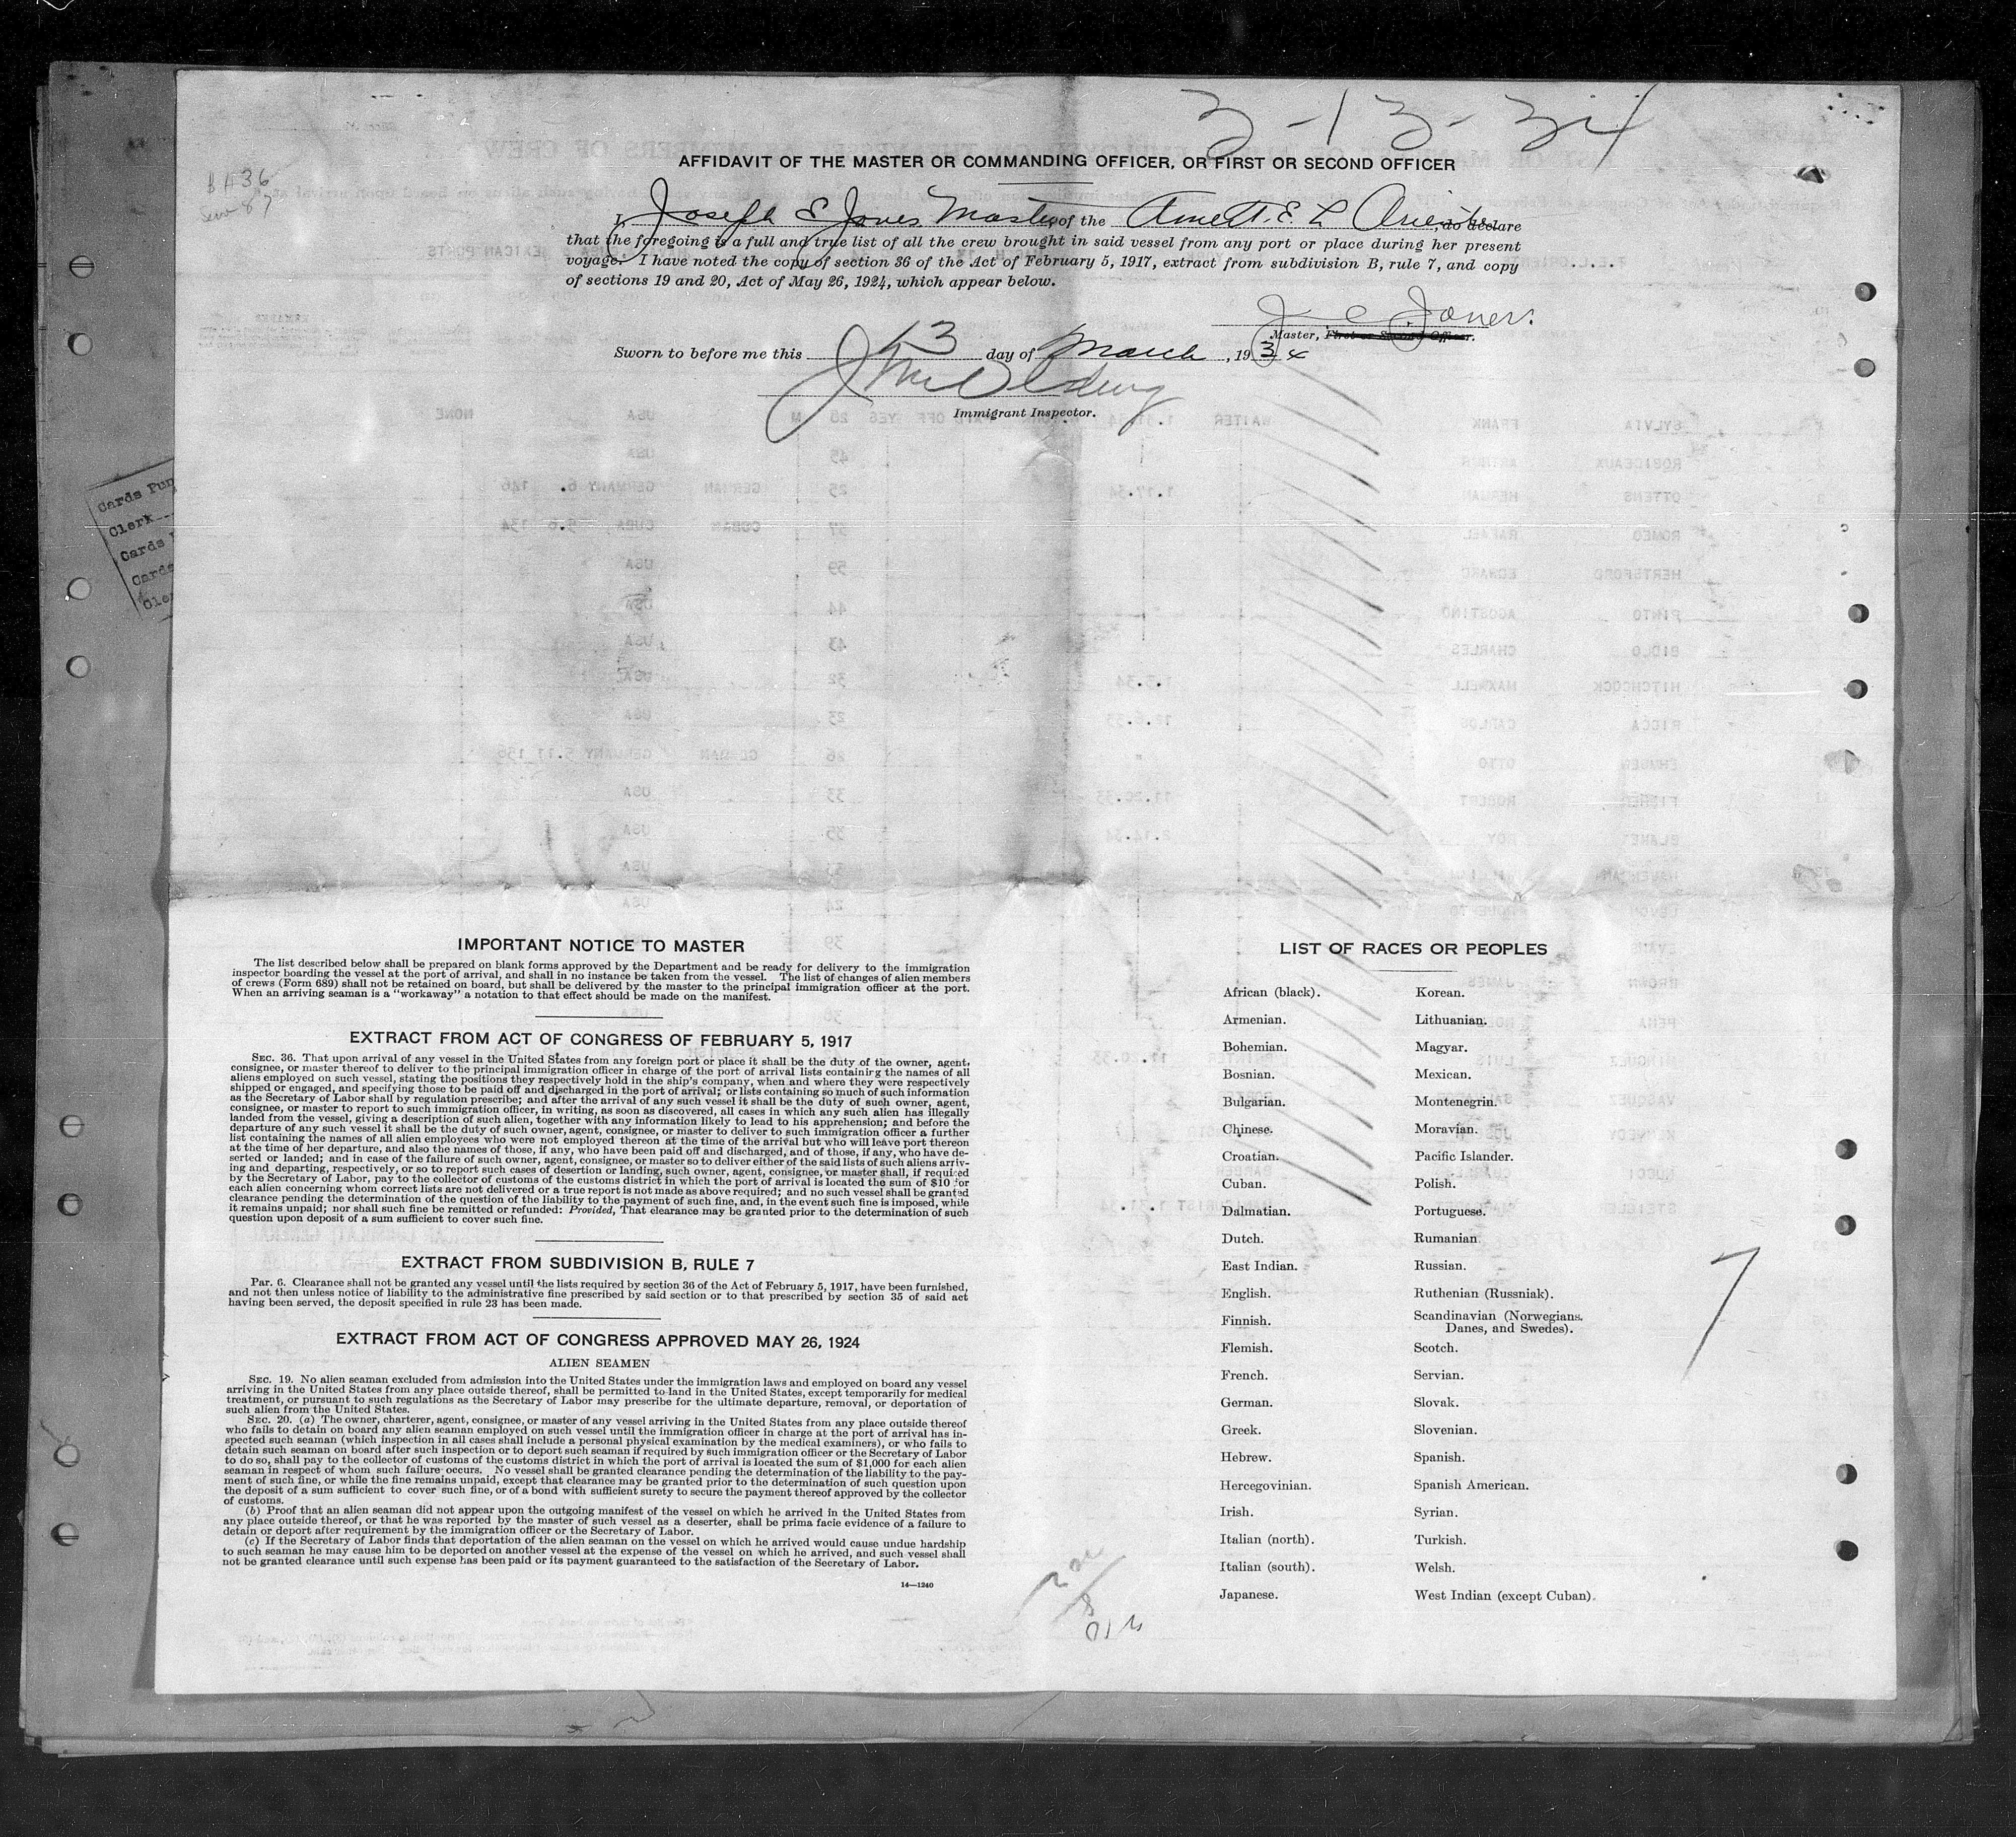 3-13-34
AFFIDAVIT OF THE MASTER OR COMMANDING OFFICER, OR FIRST OR SECOND OFFICER
I, Joseph E Jones Master of the E. L. do declare
that the foregoing is a full and true list of all the crew brought in said vessel from any port or place during her present
voyage. I have noted the copy of section 36 of the Act of February 5, 1917, extract from subdivision B, rule 7, and copy
of sections 19 and 20, Act of May 26, 1924, which appear below.
J E Jones.
Master, First or Second Officer.
Sworn to before me this 13 day of March, 1934
Immigrant Inspector.
Cards Pun
Clerk
Cards
Cards
Cle
IMPORTANT NOTICE TO MASTER
The list described below shall be prepared on blank forms approved by the Department and be ready for delivery to the immigration
inspector boarding the vessel at the port of arrival, and shall in no instance be taken from the vessel. The list of changes of alien members
of crews (Form 689) shall not be retained on board, but shall be delivered by the master to the principal immigration officer at the port.
When an arriving seaman is a "workaway" a notation to that effect should be made on the manifest.
EXTRACT FROM ACT OF CONGRESS OF FEBRUARY 5, 1917
SEC. 36. That upon arrival of any vessel in the United States from any foreign port or place it shall be the duty of the owner, agent,
consignee, or master thereof to deliver to the principal immigration officer in charge of the port of arrival lists containing the names of all
aliens employed on such vessel, stating the positions they respectively hold in the ship's company, when and where they were respectively
shipped or engaged, and specifying those to be paid off and discharged in the port of arrival; or lists containing so much of such information
as the Secretary of Labor shall by regulation prescribe; and after the arrival of any such vessel it shall be the duty of such owner, agent,
consignee, or master to report to such immigration officer, in writing, as soon as discovered, all cases in which any such alien has illegally
landed from the vessel, giving a description of such alien, together with any information likely to lead to his apprehension; and before the
departure of any such vessel it shall be the duty of such owner, agent, consignee, or master to deliver to such immigration officer a further
list containing the names of all alien employees who were not employed thereon at the time of the arrival but who will leave port thereon
at the time of her departure, and also the names of those, if any, who have been paid off and discharged, and of those, if any, who have de-
serted or landed; and in case of the failure of such owner, agent, consignee, or master so to deliver either of the said lists of such aliens arriv-
ing and departing, respectively, or so to report such cases of desertion or landing, such owner, agent, consignee, or master shall, if required
by the Secretary of Labor, pay to the collector of customs of the customs district in which the port of arrival is located the sum of $10 for
each alien concerning whom correct lists are not delivered or a true report is not made as above required; and no such vessel shall be granted
clearance pending the determination of the question of the liability to the payment of such fine, and, in the event such fine is imposed, while
it remains unpaid; nor shall such fine be remitted or refunded: Provided, That clearance may be granted prior to the determination of such
question upon deposit of a sum sufficient to cover such fine.
EXTRACT FROM SUBDIVISION B, RULE 7
Par. 6. Clearance shall not be granted any vessel until the lists required by section 36 of the Act of February 5, 1917, have been furnished,
and not then unless notice of liability to the administrative fine prescribed by said section or to that prescribed by section 35 of said act
having been served, the deposit specified in rule 23 has been made.
EXTRACT FROM ACT OF CONGRESS APPROVED MAY 26, 1924
ALIEN SEAMEN
SEC. 19. No alien seaman excluded from admission into the United States under the immigration laws and employed on board any vessel
arriving in the United States from any place outside thereof, shall be permitted to land in the United States, except temporarily for medical
treatment, or pursuant to such regulations as the Secretary of Labor may prescribe for the ultimate departure, removal, or deportation of
such alien from the United States.
SEC. 20. (a) The owner, charterer, agent, consignee, or master of any vessel arriving in the United States from any place outside thereof
who fails to detain on board any alien seaman employed on such vessel until the immigration officer in charge at the port of arrival has in-
spected such seaman (which inspection in all cases shall include a personal physical examination by the medical examiners), or who fails to
detain such seaman on board after such inspection or to deport such seaman if required by such immigration officer or the Secretary of Labor
to do so, shall pay to the collector of customs of the customs district in which the port of arrival is located the sum of $1,000 for each alien
seaman in respect of whom such failure occurs. No vessel shall be granted clearance pending the determination of the liability to the pay-
ment of such fine, or while the fine remains unpaid, except that clearance may be granted prior to the determination of such question upon
the deposit of a sum sufficient to cover such fine, or of a bond with sufficient surety to secure the payment thereof approved by the collector
of customs.
(b) Proof that an alien seaman did not appear upon the outgoing manifest of the vessel on which he arrived in the United States from
any place outside thereof, or that he was reported by the master of such vessel as a deserter, shall be prima facie evidence of a failure to
detain or deport after requirement by the immigration officer or the Secretary of Labor.
(c) If the Secretary of Labor finds that deportation of the alien seaman on the vessel on which he arrived would cause undue hardship
to such seaman he may cause him to be deported on another vessel at the expense of the vessel on which he arrived, and such vessel shall
not be granted clearance until such expense has been paid or its payment guaranteed to the satisfaction of the Secretary of Labor.
14—1240
LIST OF RACES OR PEOPLES
African (black).
Armenian.
Bohemian.
Bosnian.
Bulgarian.
Chinese.
Croatian.
Cuban.
Dalmatian.
Dutch.
East Indian.
English.
Finnish.
Flemish.
French.
German.
Greek.
Hebrew.
Hercegovinian.
Irish.
Italian (north).
Italian (south).
Japanese.
Korean.
Lithuanian.
Magyar.
Mexican.
Montenegrin.
Moravian.
Pacific Islander.
Polish.
Portuguese.
Rumanian.
Russian.
Ruthenian (Russniak).
Scandinavian (Norwegians,
Danes, and Swedes).
Scotch.
Servian.
Slovak.
Slovenian.
Spanish.
Spanish American.
Syrian.
Turkish.
Welsh.
West Indian (except Cuban).
7